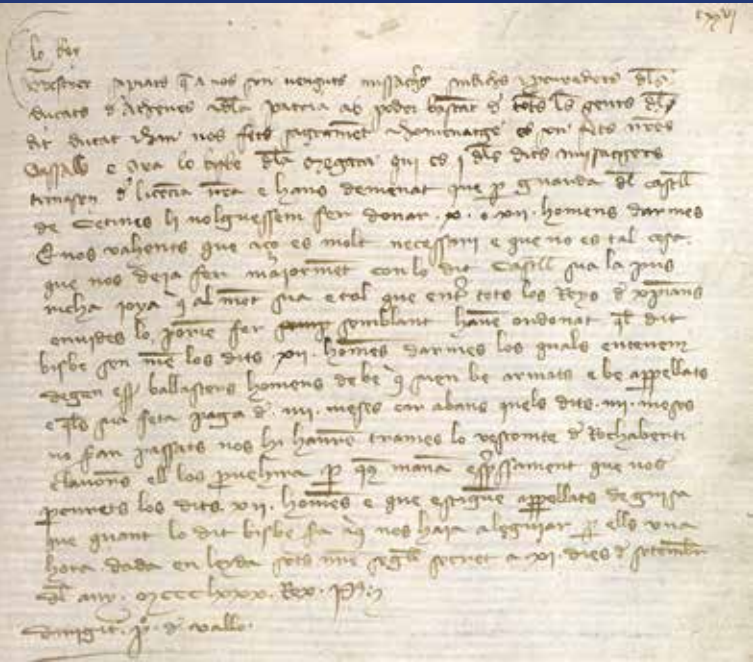 cxvi
lo Rey
Tresorer sapiats q̄ a nos son venguts missatgs̄ sindichs e procuradors dels
ducats d Athenes e dla Patria ab poder bastāt d totes les gents dls
dit ducat e han nos fets sagramēt e homenatge es son fets nr̄es
vassalls e ara lo bisbe dla Megara qui es j dls dits missatgers
tornasen d licēcia nr̄a e hans demenat que p guarda dl castell
de Cetines li volguessem fer donar .x. o xii. homens darmes
E nos vahents que aço es molt necessari e que no es tal cosa
que nos deja fer majormēt con lo dit Castell sia la pus
richa joya q̄ al mōt sia e tal que entr̄ tots los Reys d xp̄ians
envides lo poriē fer semblant havē ordonat ql dit
bisbe sen mē los dits xii. homēs darmes los quals entenem
degen ess̄ ballasters homens de be q̄ sien be armats e be appellats
e qls sia feta paga d .iiii. meses car abans quels dits .iiii. meses
no s̄an passats nos hi haurē trames lo vescomte d Rochaberti
e lavors ell los pvehira p q̄us manā esp̄ssament que vos
pcurets los dits xii. homēs e que estiguē appellats de guisa
que quant lo dit bisbe s̄a aq̄ nos haia a laguiar p ells una
hora dada en leyda sots nr̄e segell secret a xi. dies d setembr̄
dl any .mccclxxx. Rex .P.
dirigit̄ .p. d vallo.